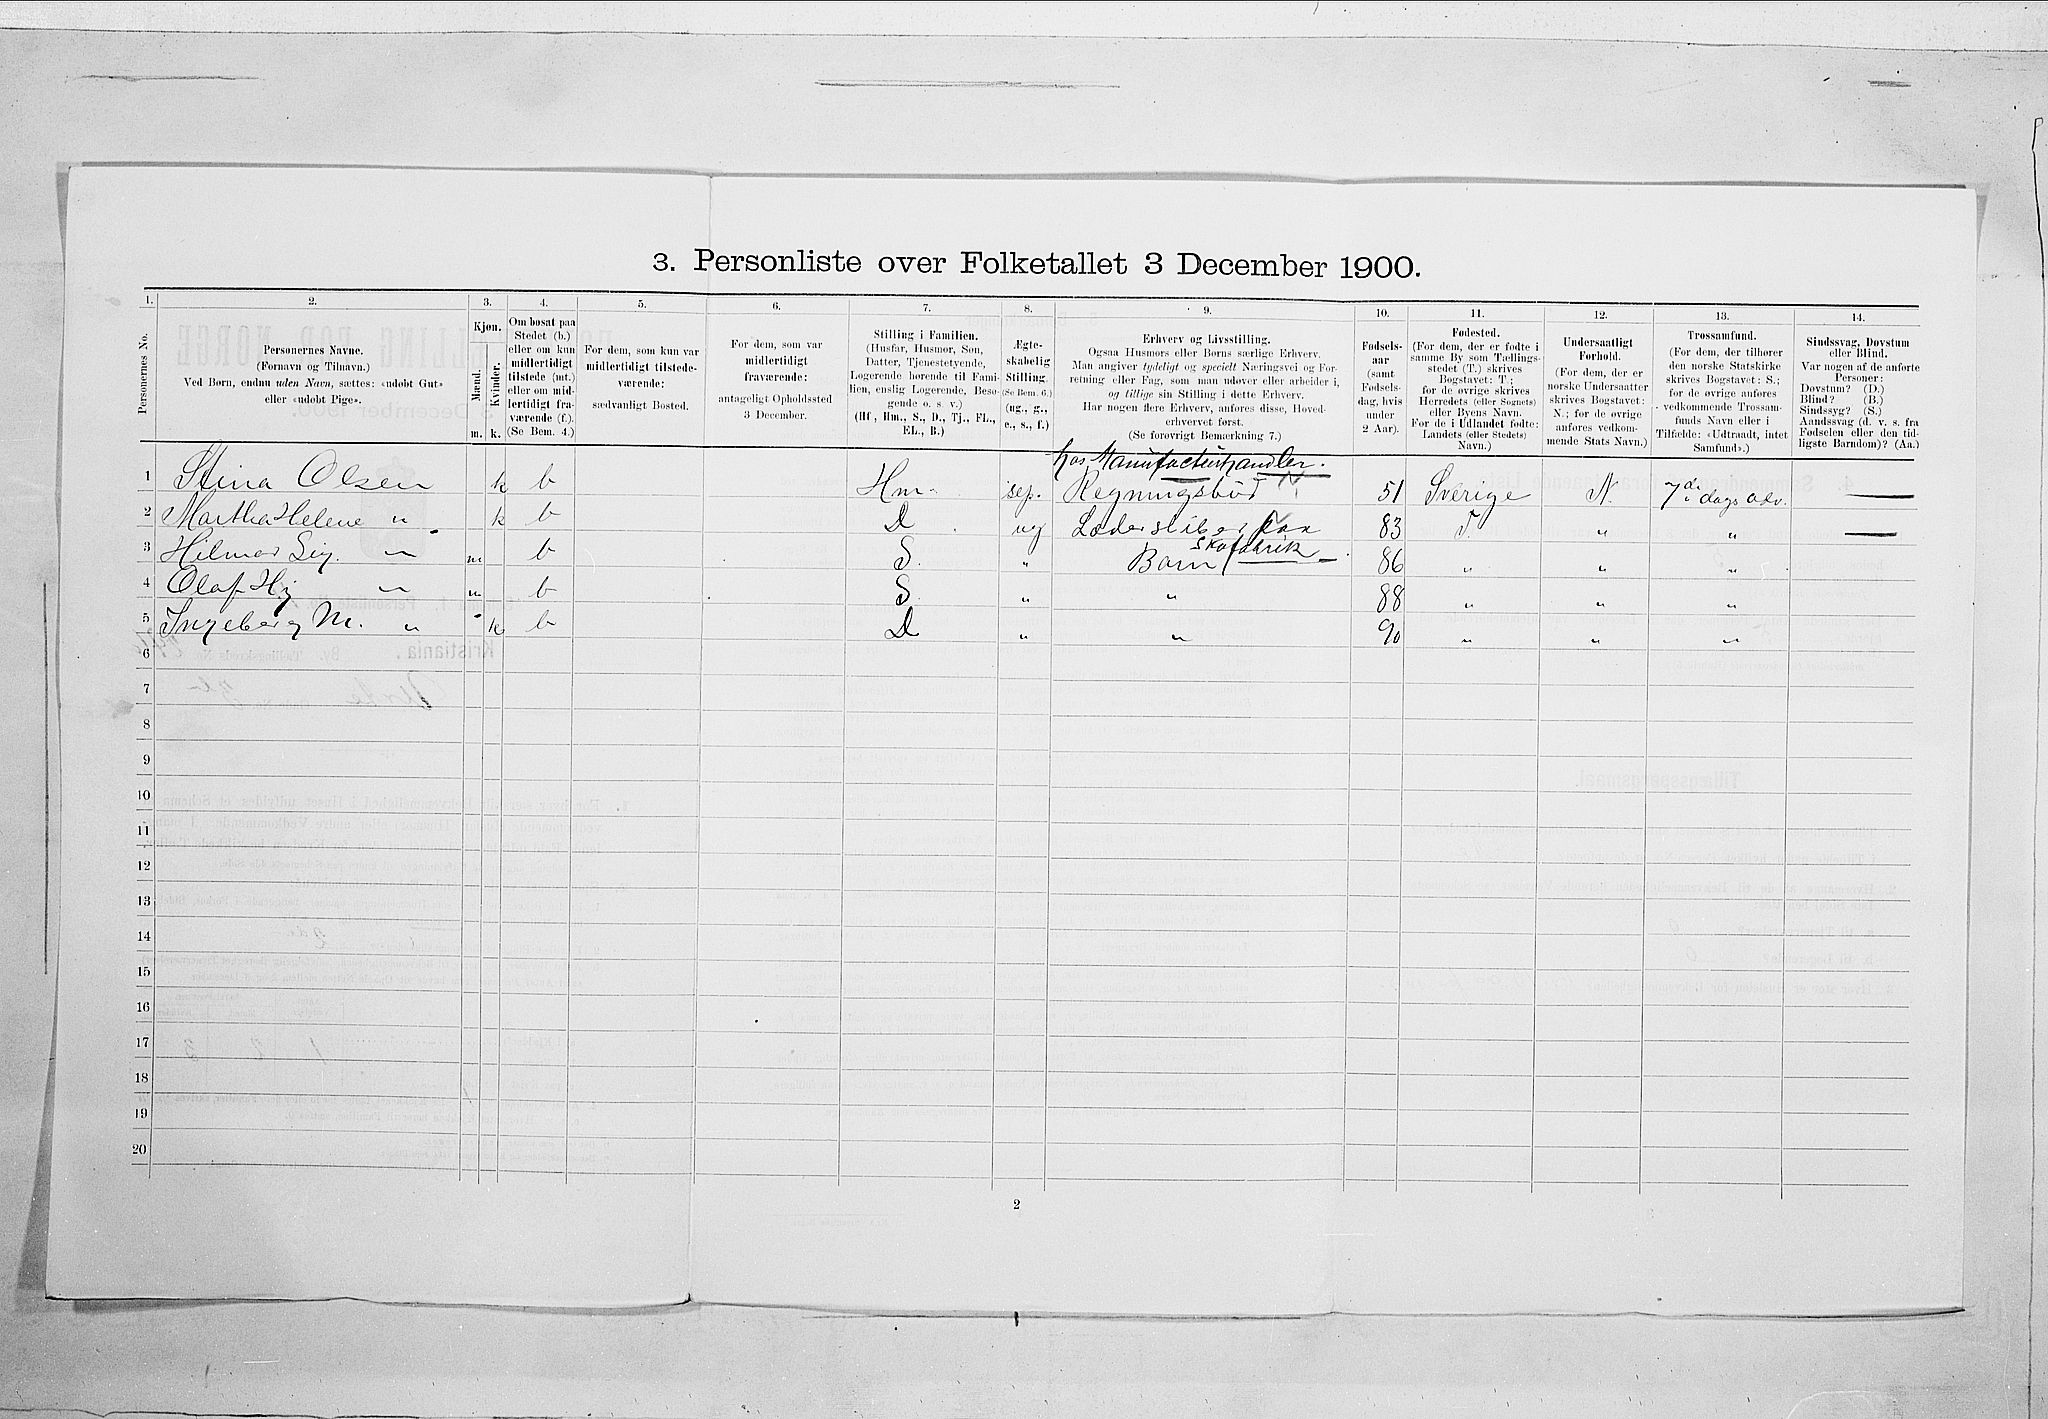 3. Personliste over Folketallet 3 December 1900.
1.
Personernes No.
2.
Personernes Navne.
(Fornavn og Tilnavn.)
Ved Børn, endnu uden Navn, sættes: «udøbt Gut»
eller «udøbt Pige».
3.
Kjøn.
Mænd.
Kvinder.
m.
k.
4.
Om bosat paa
Stedet (b.)
eller om kun
midlertidigt
tilstede (mt.)
eller om mid-
lertidigt fra-
værende (f.).
(Se Bem. 4.)
5.
For dem, som kun var
midlertidigt tilstede-
værende:
sædvanligt Bosted.
6.
For dem, som var
midlertidigt
fraværende:
antageligt Opholdssted
3 December.
7.
Stilling i Familien.
(Husfar, Husmor, Søn,
Datter, Tjenestetyende,
Logerende hørende til Fami-
lien, enslig Logerende, Besø-
gende o. s. v.)
(Hf, Hm., S., D., Tj., FL.,
EL., B.)
8.
Ægte-
skabelig
Stilling.
(Se Bem. 6.)
(ug., g.,
e., s., f.)
9.
Erhverv og Livsstilling.
Ogsaa Husmors eller Børns særlige Erhverv.
Man angiver tydeligt og specielt Næringsvei og For-
retning eller Fag, som man udøver eller arbeider i,
og tillige sin Stilling i dette Erhverv.
Har nogen flere Erhverv, anføres disse, Hoved-
erhvervet først.
(Se forøvrigt Bemærkning 7.)
10.
Fødsels-
aar
(samt
Fødsels-
dag, hvis
under
2 Aar).
11.
Fødested.
(For dem, der er fødte i
samme By som Tællings-
stedet (T.) skrives
Bogstavet: T.;
for de øvrige skrives
Herredets (eller Sognets)
eller Byens Navn.
For de i Udlandet fødte:
Landets (eller Stedets)
Navn.)
12.
Undersaatligt
Forhold.
(For dem, der er
norske Undersaatter
skrives Bogstavet:
N.; for de øvrige
anføres vedkom-
mende Stats Navn.)
13.
Trossamfund.
(For dem, der tilhører
den norske Statskirke
skrives Bogstavet: S.;
for de øvrige anføres
vedkommende Trossam-
funds Navn eller i
Tilfælde: «Udtraadt, intet
Samfund».)
14.
Sindssvag, Døvstum
eller Blind.
Var nogen af de anførte
Personer:
Døvstum? (D.)
Blind? (B.)
Sindssyg? (S.)
Aandssvag (d. v. s. fra
Fødselen eller den tid-
ligste Barndom)? (Aa.)
hos Manufacturhandler.
1 Stina Olsen k b Hm. sep. Regningsbud 51 Sverige N. 7 de dags adv. —
2 Martha Helene " k b D ug Lædersliber paa 83 T. " " —
Skofabrik
3 Hilmar Sig. " m b S. " Barn 86 " " "
4 Olaf Hj " m b S. " " 88 " " "
5 Ingeborg M. " k b D " " 90 " " "
6
7
8
9
10
11
12
13
14
15
16
17
18
19
20
2